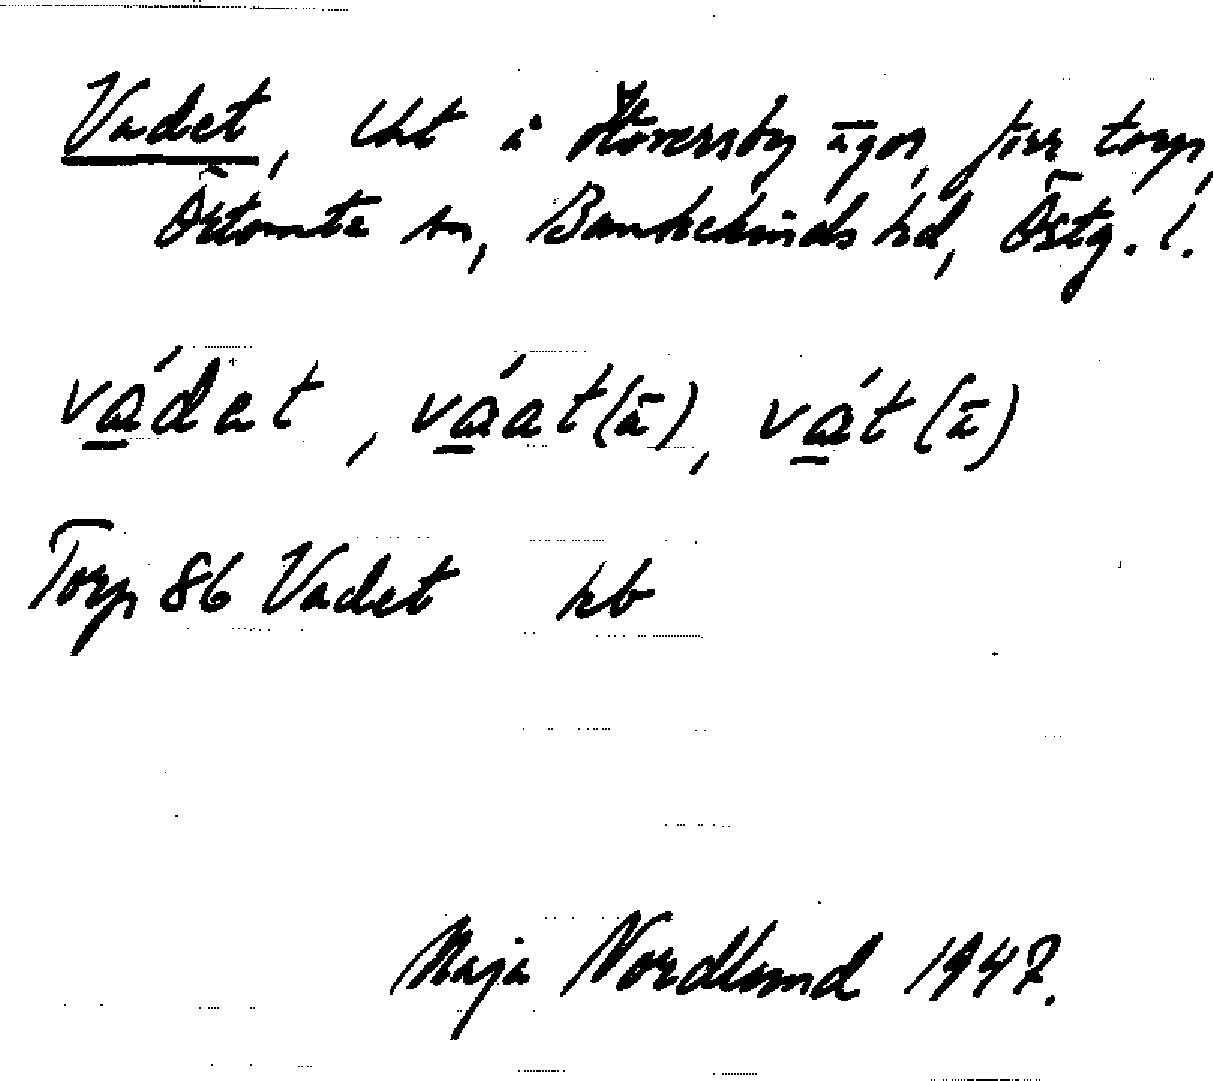 Vadet, lht å Höversby ägor, förr torp,
Örtomta sn, Bankekinds hd, Östg. l.
vádat, váat(ā), vát(ā)
Torp 86 Vadet hb
Maja Nordlund 1947.